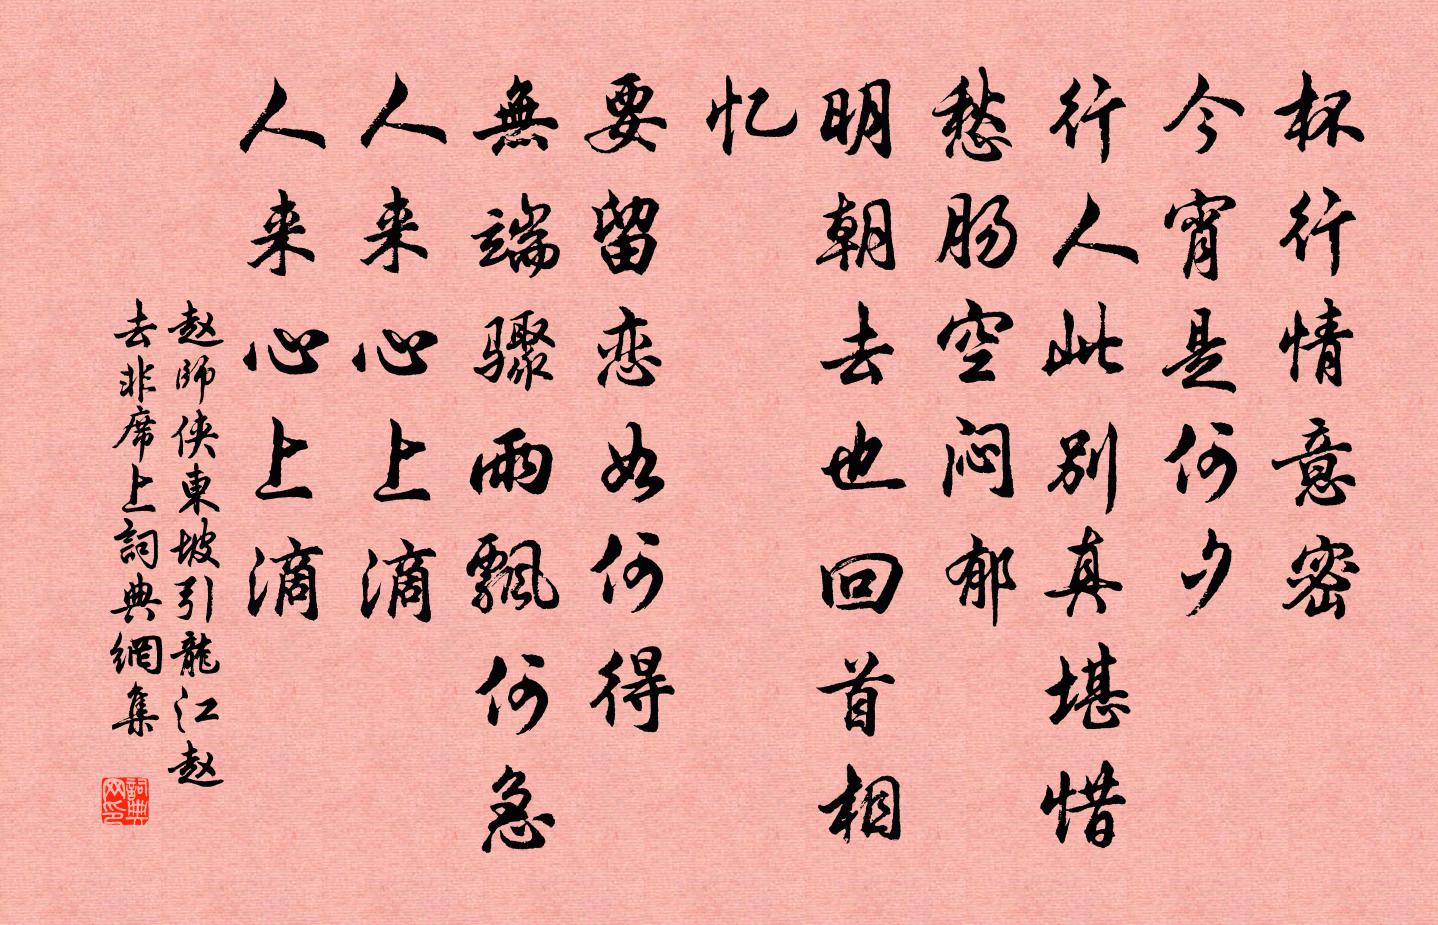 杯行情意密
今宵是何夕
行人此别真堪惜
愁肠空闷郁
明朝去也回首相
忆
要留恋如何得
無端驟雨飄何急
人来心上滴
人来心上滴
赵師侠東坡引龍江赵
去非席上詞典網集
詞典网印